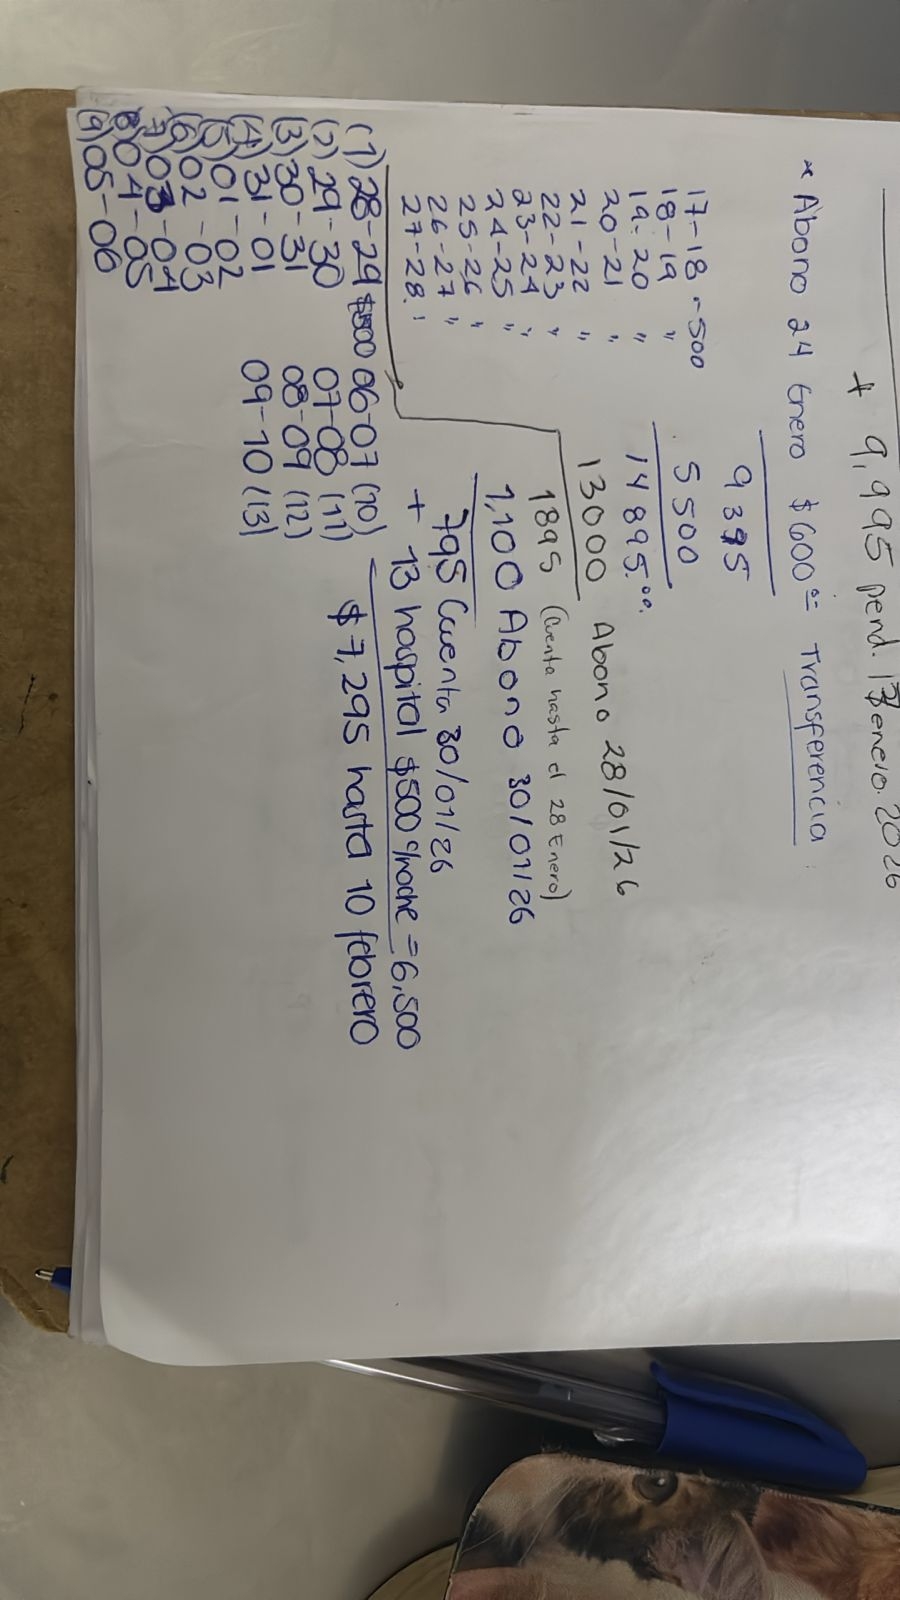 + 9,995 pend. 17 enero. 2026
* Abono 24 Enero $600.= Transferencia
9395
5500
14895.00
13000 Abono 28/01/26
1895 (Cuenta hasta el 28 Enero)
1,100 Abono 30/01/26
795 Cuenta 30/01/26
+ 13 hospital $500 c/noche = 6,500
$7,295 hasta 10 febrero
17-18 - 500
18-19 "
19-20 "
20-21 "
21-22 "
22-23 "
23-24 "
24-25 "
25-26 "
26-27 "
27-28 "
(1) 28-29 $500
(2) 29-30
(3) 30-31
(4) 31-01
(5) 01-02
(6) 02-03
(7) 03-04
(8) 04-05
(9) 05-06
06-07 (10)
07-08 (11)
08-09 (12)
09-10 (13)